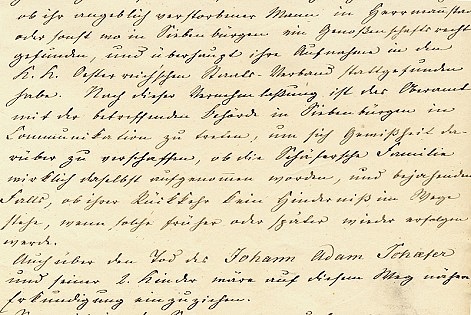 ob ihr angeblich verstorbener Mann in Herrmanstadt
oder sonst wo in Siebenbürgen ein Genoßenschaftsrecht
gefunden, und überhaupt ihre Aufnahme in den
K. K. Oesterreichschen Staats-Verband stattgefunden
habe. Nach dieser Vernehmlaßung ist das Oberamt
mit der betreffenden Behörde in Siebenbürgen in
Communikation zu treten, um sich Gewißheit da-
rüber zu verschaffen, ob die Schäfersche Familie
wirklich daselbst aufgenommen worden, und bejahenden
Falls, ob ihrer Rückkehr kein Hinderniß im Wege
stehe, wenn solche früher oder später wieder erfolgen
werde.
Auch über den Tod des Johann Adam Schæfer
und seiner 2. Kinder wäre auf diesem Weg nähere
Erkundigung einzuziehen.